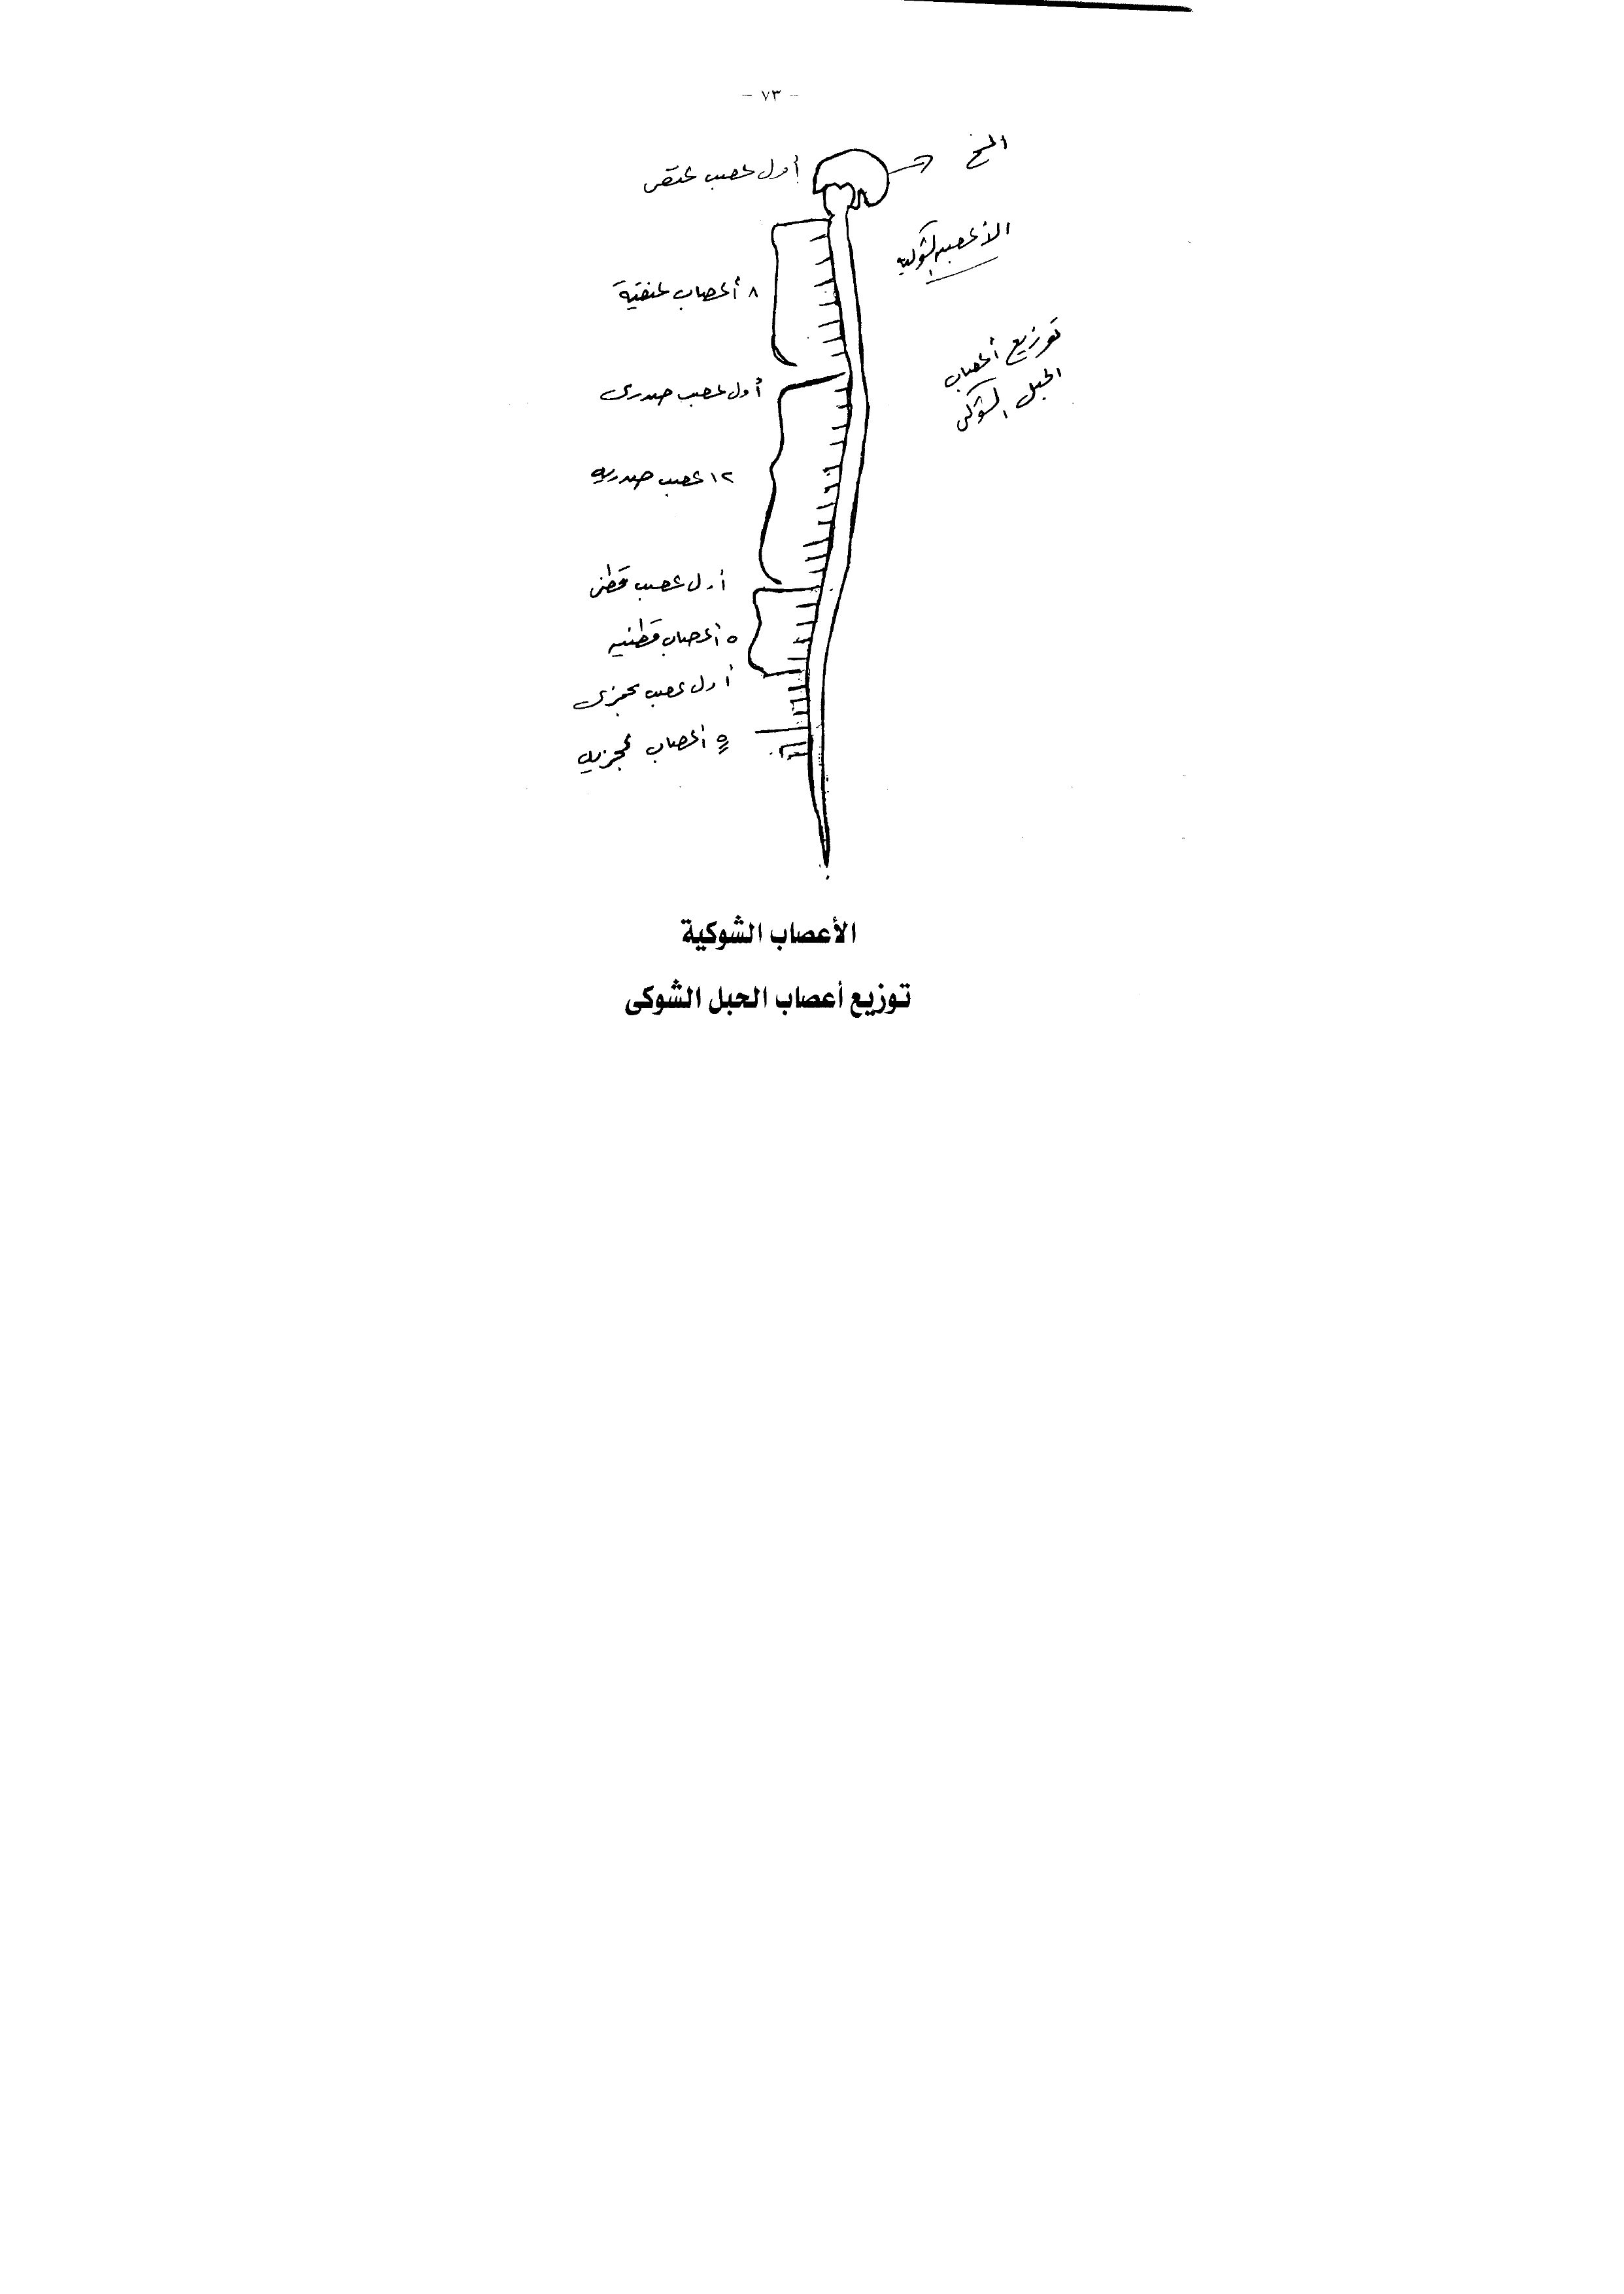 - ٧٣ -
المخ
أول عصب عنقى
الأعصاب الشوكيه
٨ أعصاب عنقية
توزيع أعصاب
الحبل الشوكى
أول عصب صدرى
١٢ عصب صدريه
أول عصب قطنى
٥ أعصاب قطنيه
أول عصب عجزى
٥ أعصاب عجزيه
الأعصاب الشوكية
توزيع أعصاب الحبل الشوكى